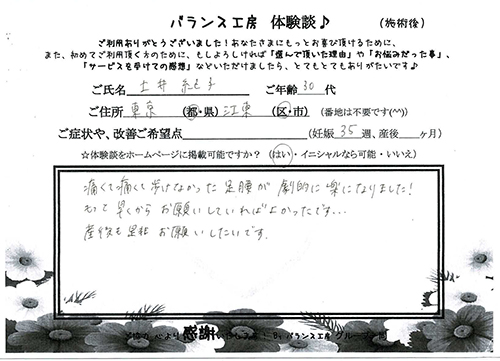 バランス工房 体験談♪ (施術後)
ご利用ありがとうございました！あなたさまにもっとお喜び頂けるために、
また、初めてご利用頂く方のために、もしよろしければ「選んで頂いた理由」や「お悩みだった事」、
「サービスを受けての感想」などいただけましたら、とてもとてもありがたいです♪
ご氏名 土井 子 ご年齢 30 代
ご住所 東京 (都・県) 江東 (区・市) (番地は不要です(^^))
ご症状や、改善ご希望点 (妊娠 35 週、産後 ヶ月)
☆体験談をホームページに掲載可能ですか？ (はい・イニシャルなら可能・いいえ)
痛くて痛くて歩けなかった足腰が 劇的に楽になりました！
もっと早くから お願いしていればよかったです...
産後も是非 お願いしたいです。
ご協力心より感謝いたします！ By バランス工房グループ